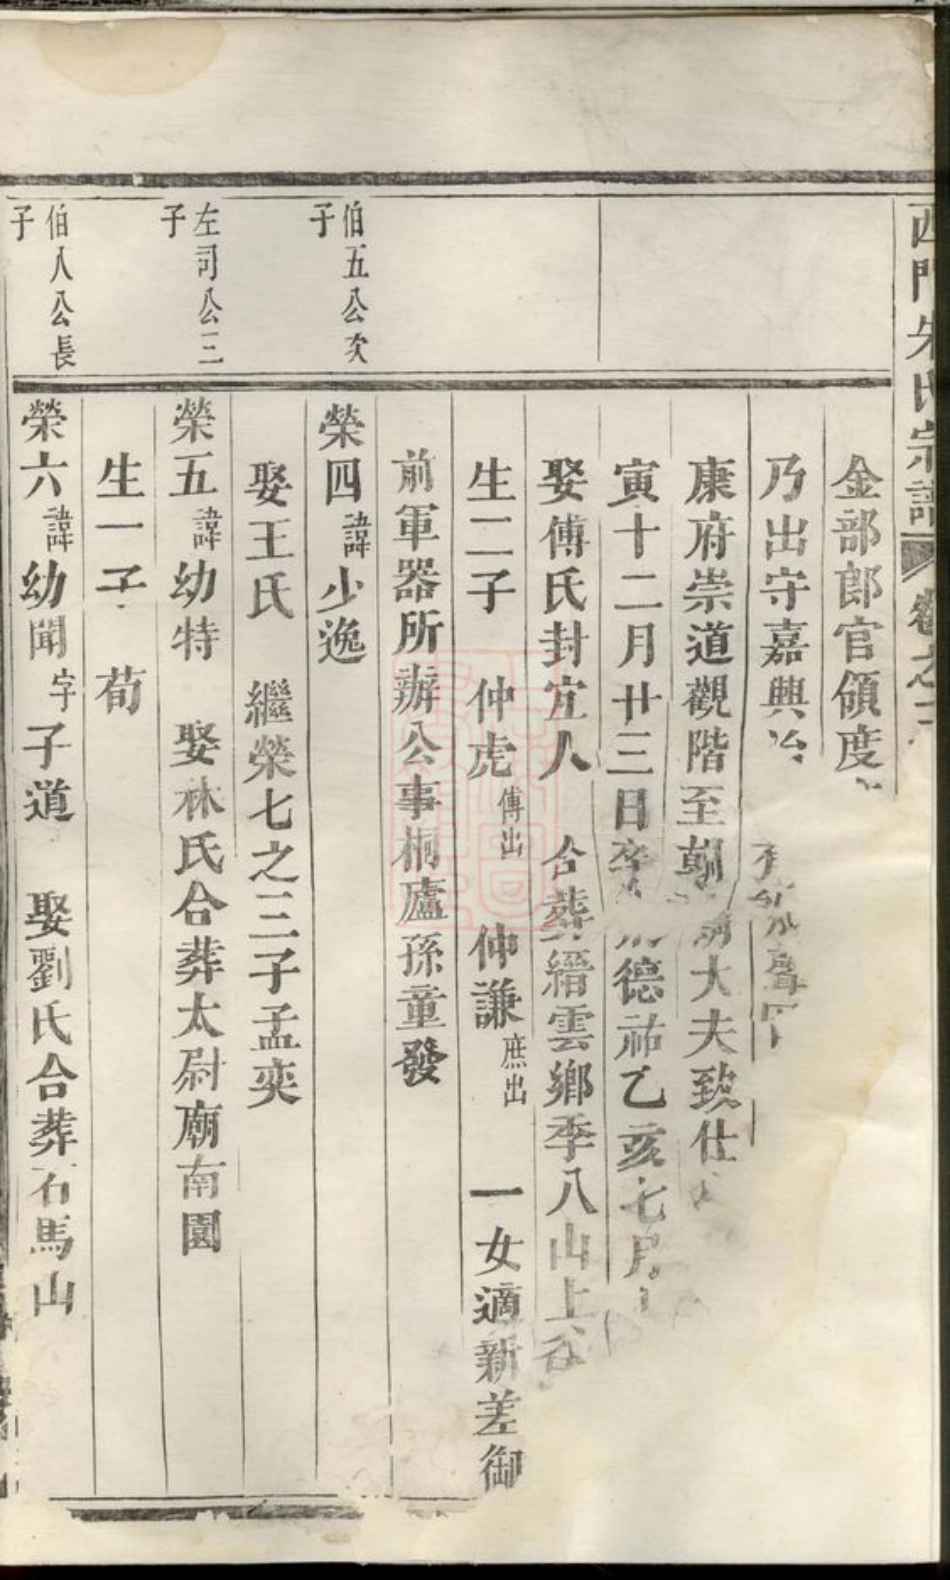 西門朱氏宗譜 卷之二
金部郎官領度
乃出守嘉興 有 聲
康府崇道觀階至朝請大夫致仕
寅十二月廿三日 德祐乙亥七月
娶傅氏封宜人 合葬縉雲鄉季八山上谷
生二子 仲虎傅出 仲謙庶出 一女適新差御
前軍器所辦公事桐廬孫童發
伯五公次子
榮四諱少逸
娶王氏 繼榮七之三子孟奕
左司公三子
榮五諱幼特 娶林氏合葬太尉廟南園
生一子 荀
伯八公長子
榮六諱幼聞字子道 娶劉氏合葬石馬山